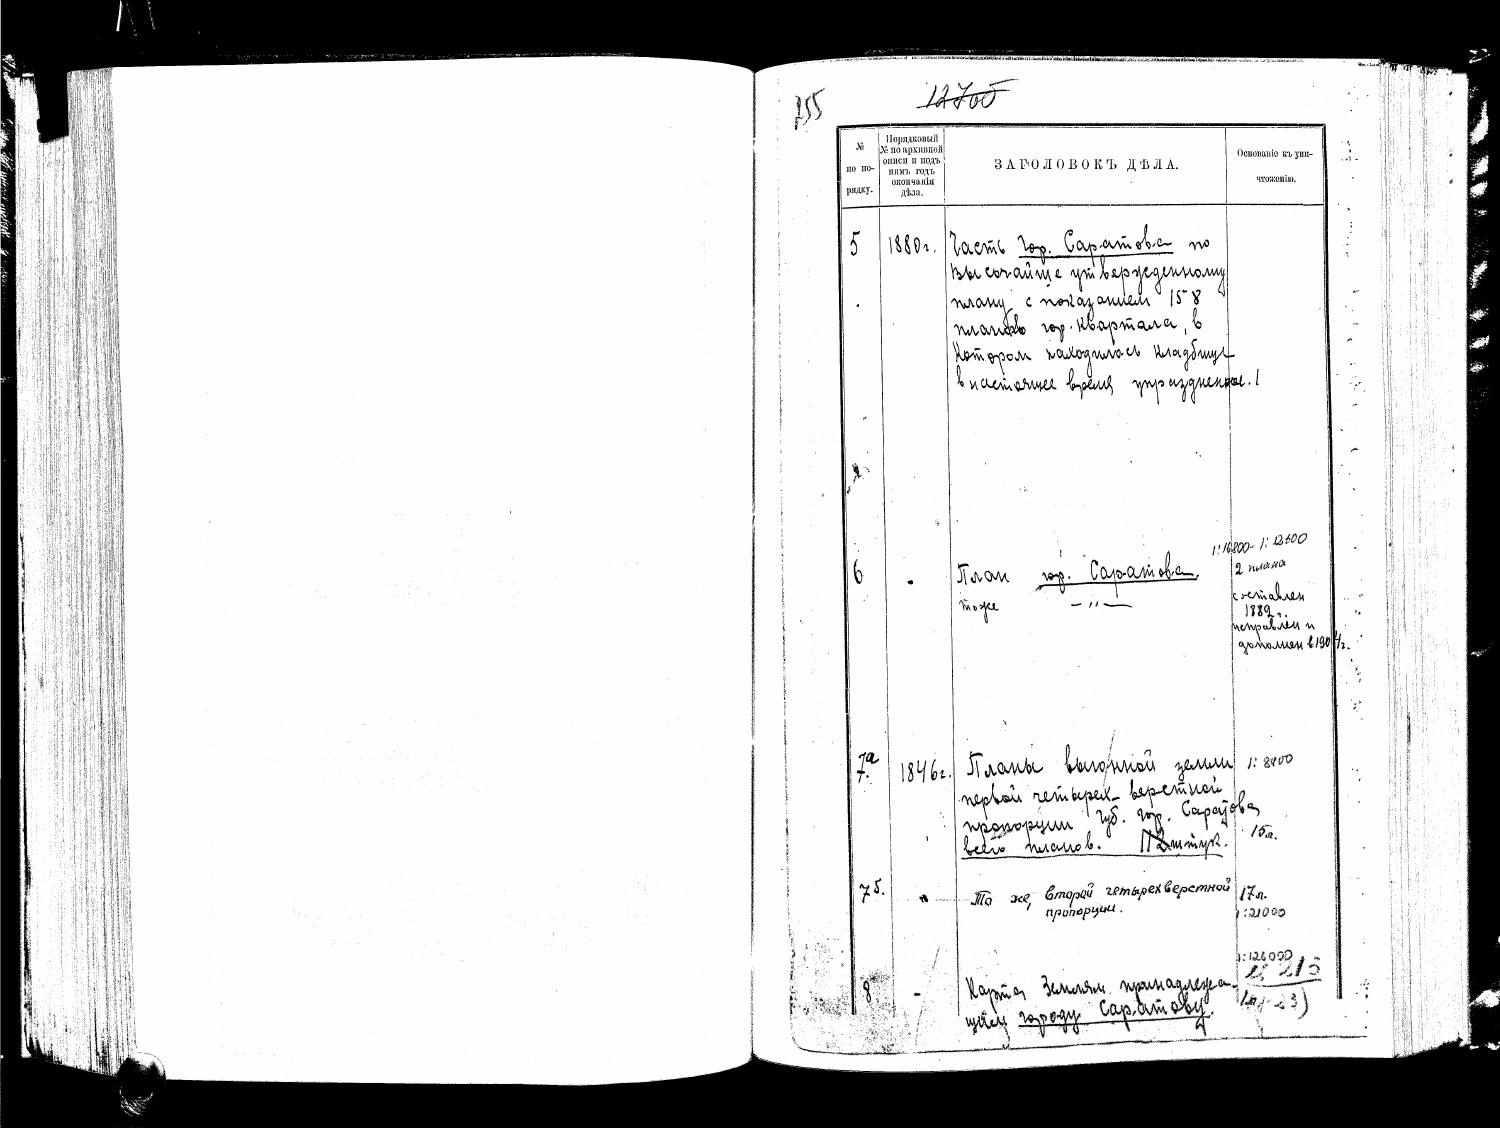 755
12705
№
по по-
рядку.
Порядковый
№ по архивной
описи и подъ
нимъ годъ
окончанія
дѣла.
ЗАГОЛОВОКЪ ДѢЛА.
Основаніе къ уни-
чтоженію.
5 1880г. Часть гор. Саратова по
Высочайше утвержденному
плану с показанием 158
планов гор. квартала, в
котором находилось кладбище
в настоящее время упраздненное.
1:16800-1:12600
6 План гор. Саратова. 2 плана
тоже —"—
составлен
1882 г.
исправлен и
дополнен в 1904г.
7а. 1846г. Планы выгонной земли 1:8400
первой четырех-верстной
пропорции губ. гор. Саратова
всего планов. штук. 15л.
7б. То же, второй четырехверстной 17л.
пропорции. 1:21000
1:126000
8 - Карта землям принадлежа- 215
щим городу Саратову. 1л 23)